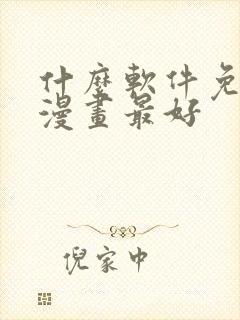 什麼軟件免
漫畫最好
倪家中